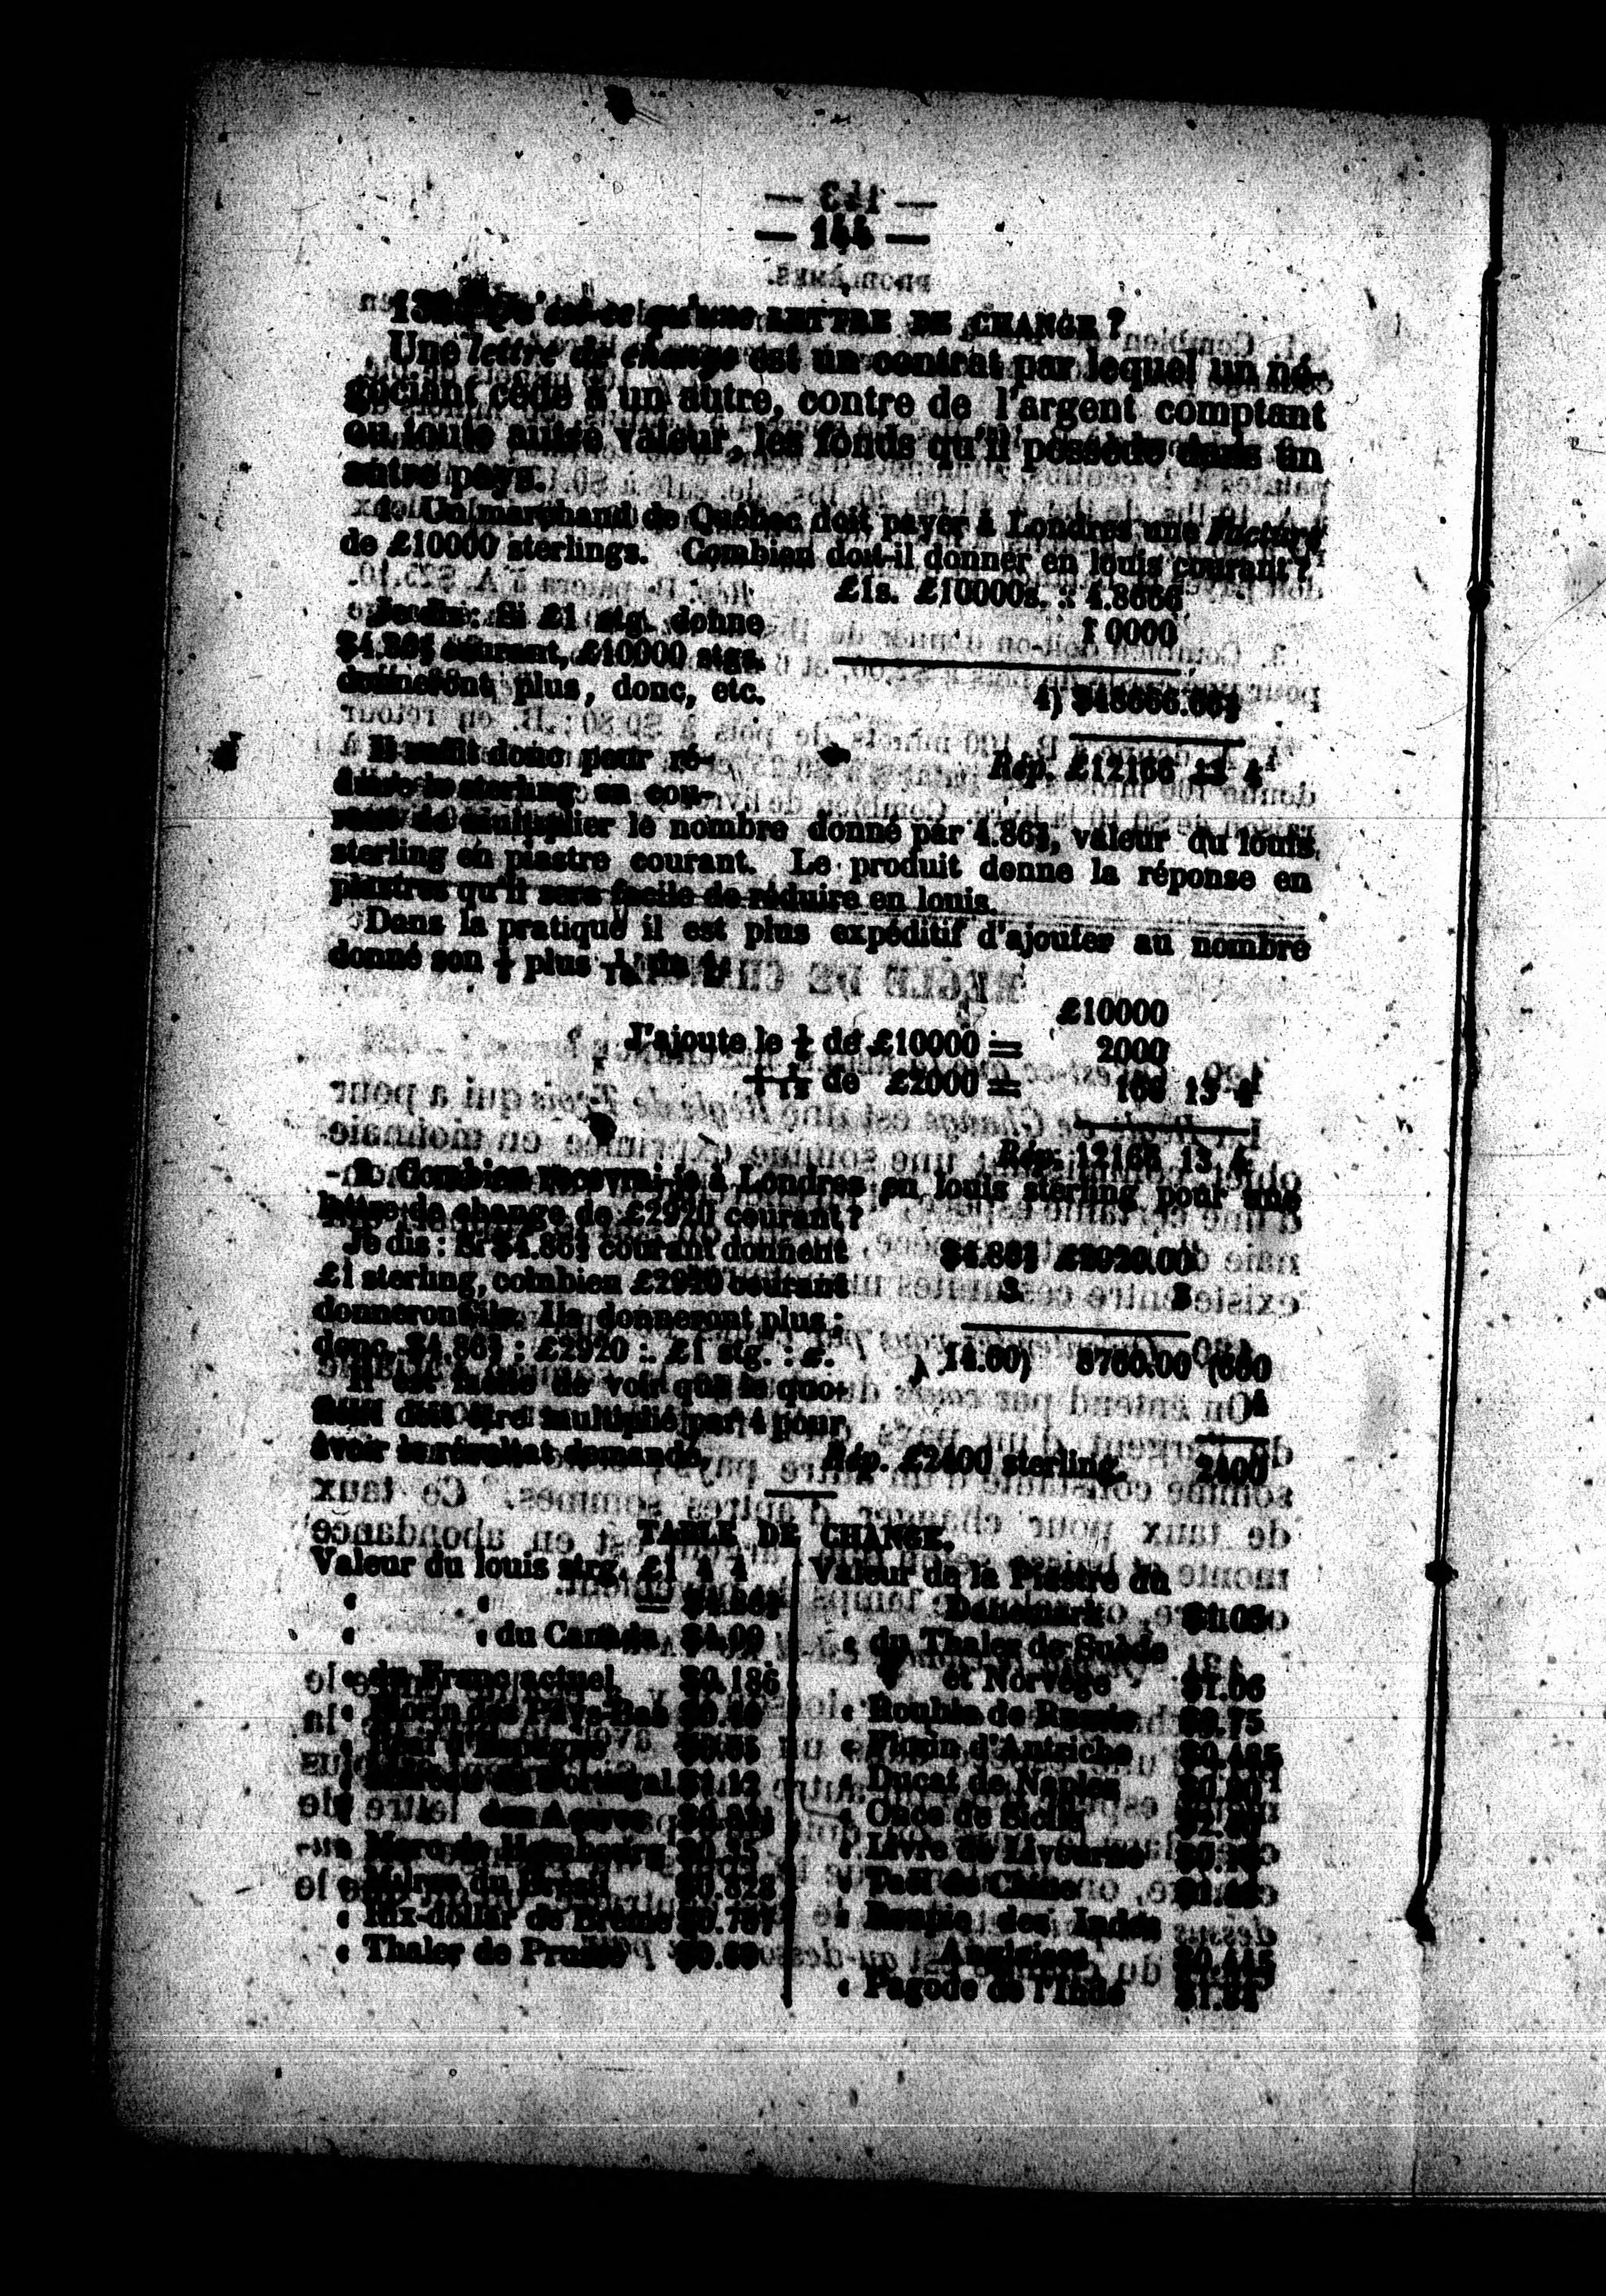 — 144 —
Qu'est-ce qu'une LETTRE DE CHANGE ?
Une lettre de change est un contrat par lequel un né-
gociant cède à un autre, contre de l'argent comptant
ou toute autre valeur, les fonds qu'il possède dans un
autre pays.
1. Un marchand de Québec doit payer à Londres une facture
de £10000 sterlings. Combien doit-il donner en louis courant ?
£1s. £10000s. :: 4.8666
Je dis : Si £1 stg. donne
10000
$4.86⅔ courant, £10000 stgs.
donneront plus, donc, etc.
4) $48666.66⅔
Il suffit donc pour ré-
Rép. £12166 13 4
duire le sterling en cou-
rant de multiplier le nombre donné par 4.86⅔, valeur du louis
sterling en piastre courant. Le produit donne la réponse en
piastres qu'il sera facile de réduire en louis.
Dans la pratique il est plus expéditif d'ajouter au nombre
donné son ⅕ plus
£10000
J'ajoute le ⅕ de £10000 = 2000
+ 1/12 de £2000 = 166 13 4
Rép. 12166 13 4
2. Combien recevrai-je à Londres en louis sterling pour une
lettre de change de £2920 courant ?
Je dis : Si $4.86⅔ courant donnent
$4.86⅔ £2920.00
£1 sterling, combien £2920 courant
3 3
donneront-ils. Ils donneront plus ;
donc. $4.86⅔ : £2920 :: £1 stg. : x.
14.60) 8760.00 (600
Il est facile de voir que le quo-
4
tient doit être multiplié par 4 pour
avoir le résultat demandé.
Rép. £2400 sterling. 2400
TABLE DE CHANGE.
Valeur du louis strg. £1 4 4
= $4.86⅔
" " du Canada $4.00
" du Franc actuel $0.186
" Florin des Pays-Bas $0.40
" $0.05
" de Portugal $1.12
" des Açores
" Marc de Hambourg $0.35
" Milrea du Brésil $0.828
" Rix-dollar de Brême $0.787
" Thaler de Prusse $0.69
Valeur de la Piastre du
Danemark $1.05
" du Thaler de Suède
et Norvège $1.06
" Rouble de Russie $0.75
" Florin d'Autriche $0.485
" Ducat de Naples $0.80
" Once de Sicile $2.40
" Livre de Livourne $0.16
" Tael de Chine
" Roupie des Indes
Anglaises $0.445
" Pagode de l'Inde $1.84